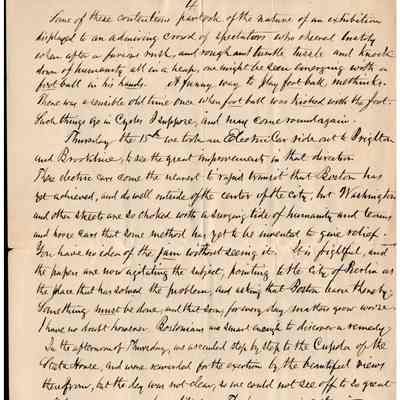 4
Some of these contentions partook of the nature of an exhibition
displayed to an admiring crowd of spectators who cheered lustily
when after a furious rush, and rough and tumble tussle and knock
down of humanity all in a heap, one might be seen emerging with a
foot ball in his hands. A funny way to play foot ball, methinks.
There was a sensible old time once when foot ball was kicked with the foot.
Such things go in Cycles I suppose, and may come round again.
Thursday the 15th we took an Electric Car ride out to Brighton
and Brookline, to see the great improvements in that direction
These electric cars come the nearest to rapid transit that Boston has
yet achieved, and do well outside of the center of the city, but Washington
and other streets are so choked with a surging tide of humanity and teams
and horse cars that some method has yet to be invented to give relief.
You have no idea of the jam without seeing it. It is frightful, and
the papers are now agitating the subject, pointing to the City of Berlin as
the place that has solved the problem, and asking that Boston learn thereby.
Something must be done, and that soon, for every day matters grow worse.
I have no doubt however Bostonians are smart enough to discover a remedy
In the afternoon of Thursday, we ascended step by step to the Cupola of the
State House, and were rewarded for the exertion by the beautiful views
therefrom, but the day was not clear, so we could not see off to so great